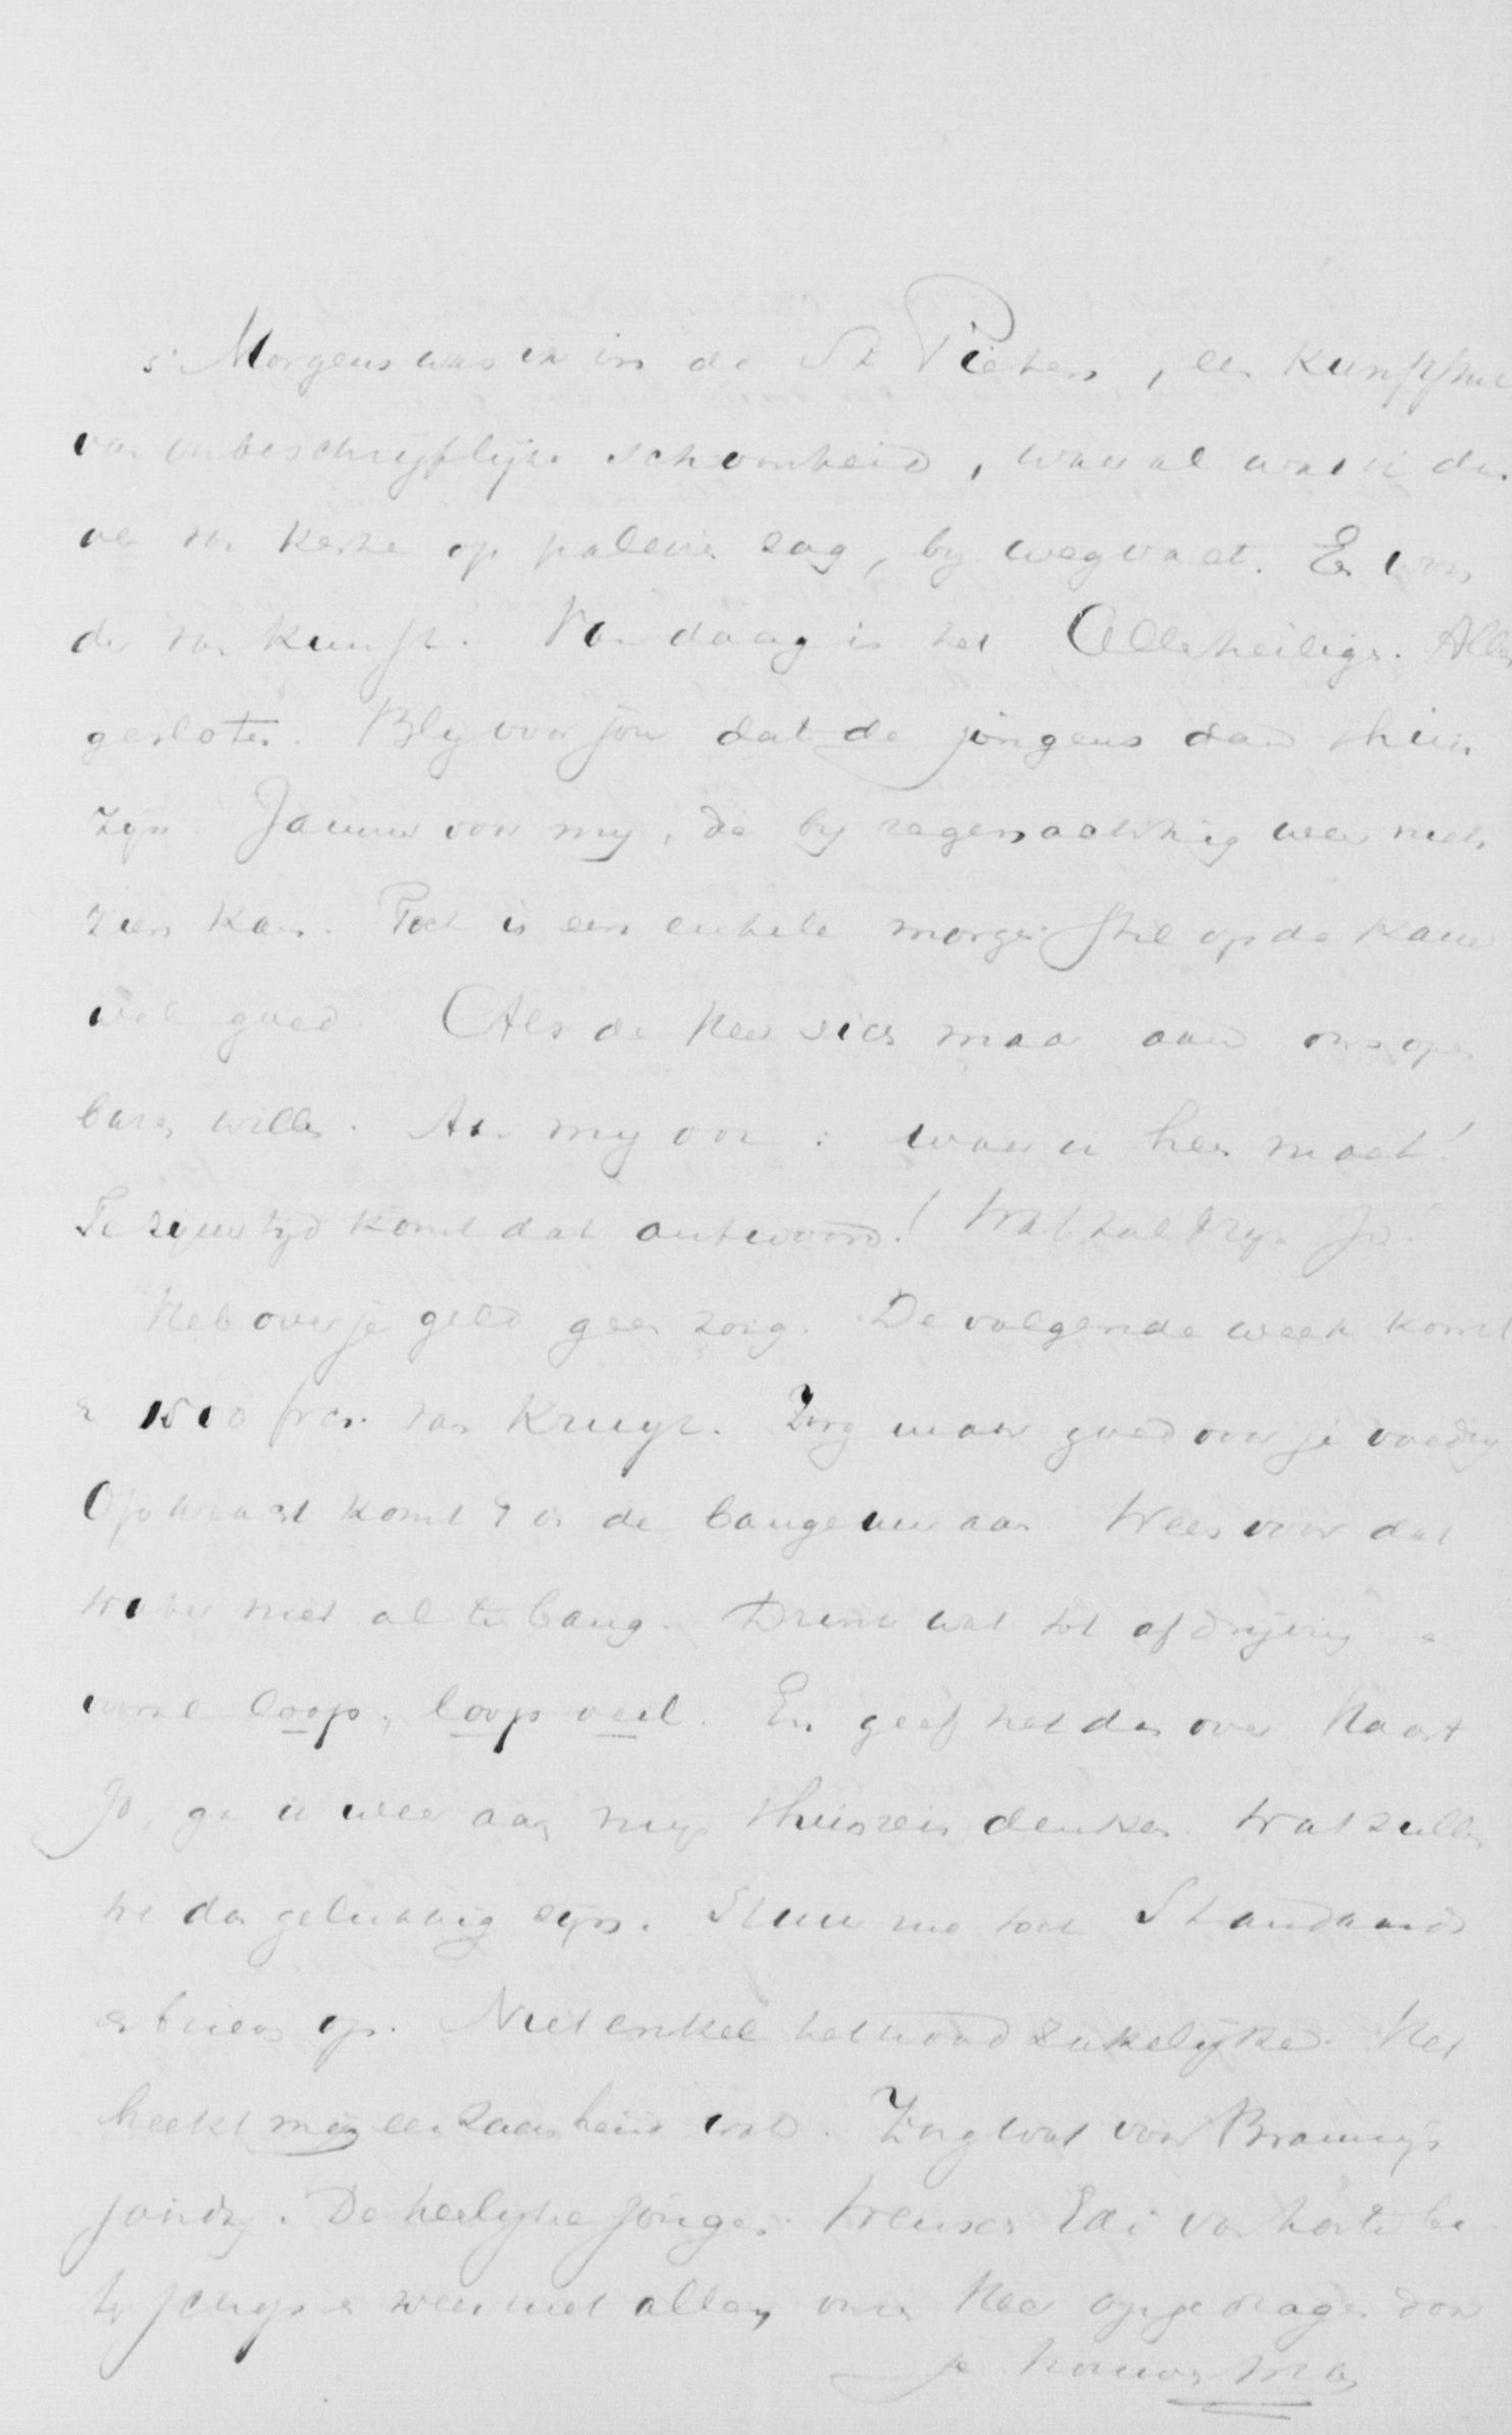 s' Morgens was ik in de St Pieters, een kunststuk
van onbeschryflijke schoonheid, waar al wat ik dus
ver van kerke of paleis zag, by wegvalt. Een won
der van kunst. Van daag is het Allerheilige. Alles
gesloten. Bly voor jou dat de jongens dan thuis
zijn. Jammer voor my, die by regenachtig weer niets
zien kan. Toch is een enkele morgen stil op de kamer
wel goed. Als de Heer zich maar aan ons open
baren wille. An my ook: waar ik heen moet!
Te zijner tyd komt dat antwoord! Wat zal 't zyn Jo!
Heb over je geld geen zorg. De volgende week komt
er 1500 frcs. van Kruyt. Zorg maar goed voor je voeding
Op kracht komt 't in de bange uur aan. Wees voor dat
water niet al te bang. Drink wat tot afdryving en
loop, loop veel. En geef het dan over Haast
Jo, ga ik weer aan myn thuisreis denken. Wat zullen
we dan gelukkig zijn. Stuur me toch Standaards
en brieven op. Niet enkel het noodzakelijke. Het
breekt myn eenzaamheid wat. Zorg wat voor Bramy's
. De heerlyke jongen. Wensch Edi van harte be
terschap en wees met allen onze Heer opgedragen door
je trouwe man